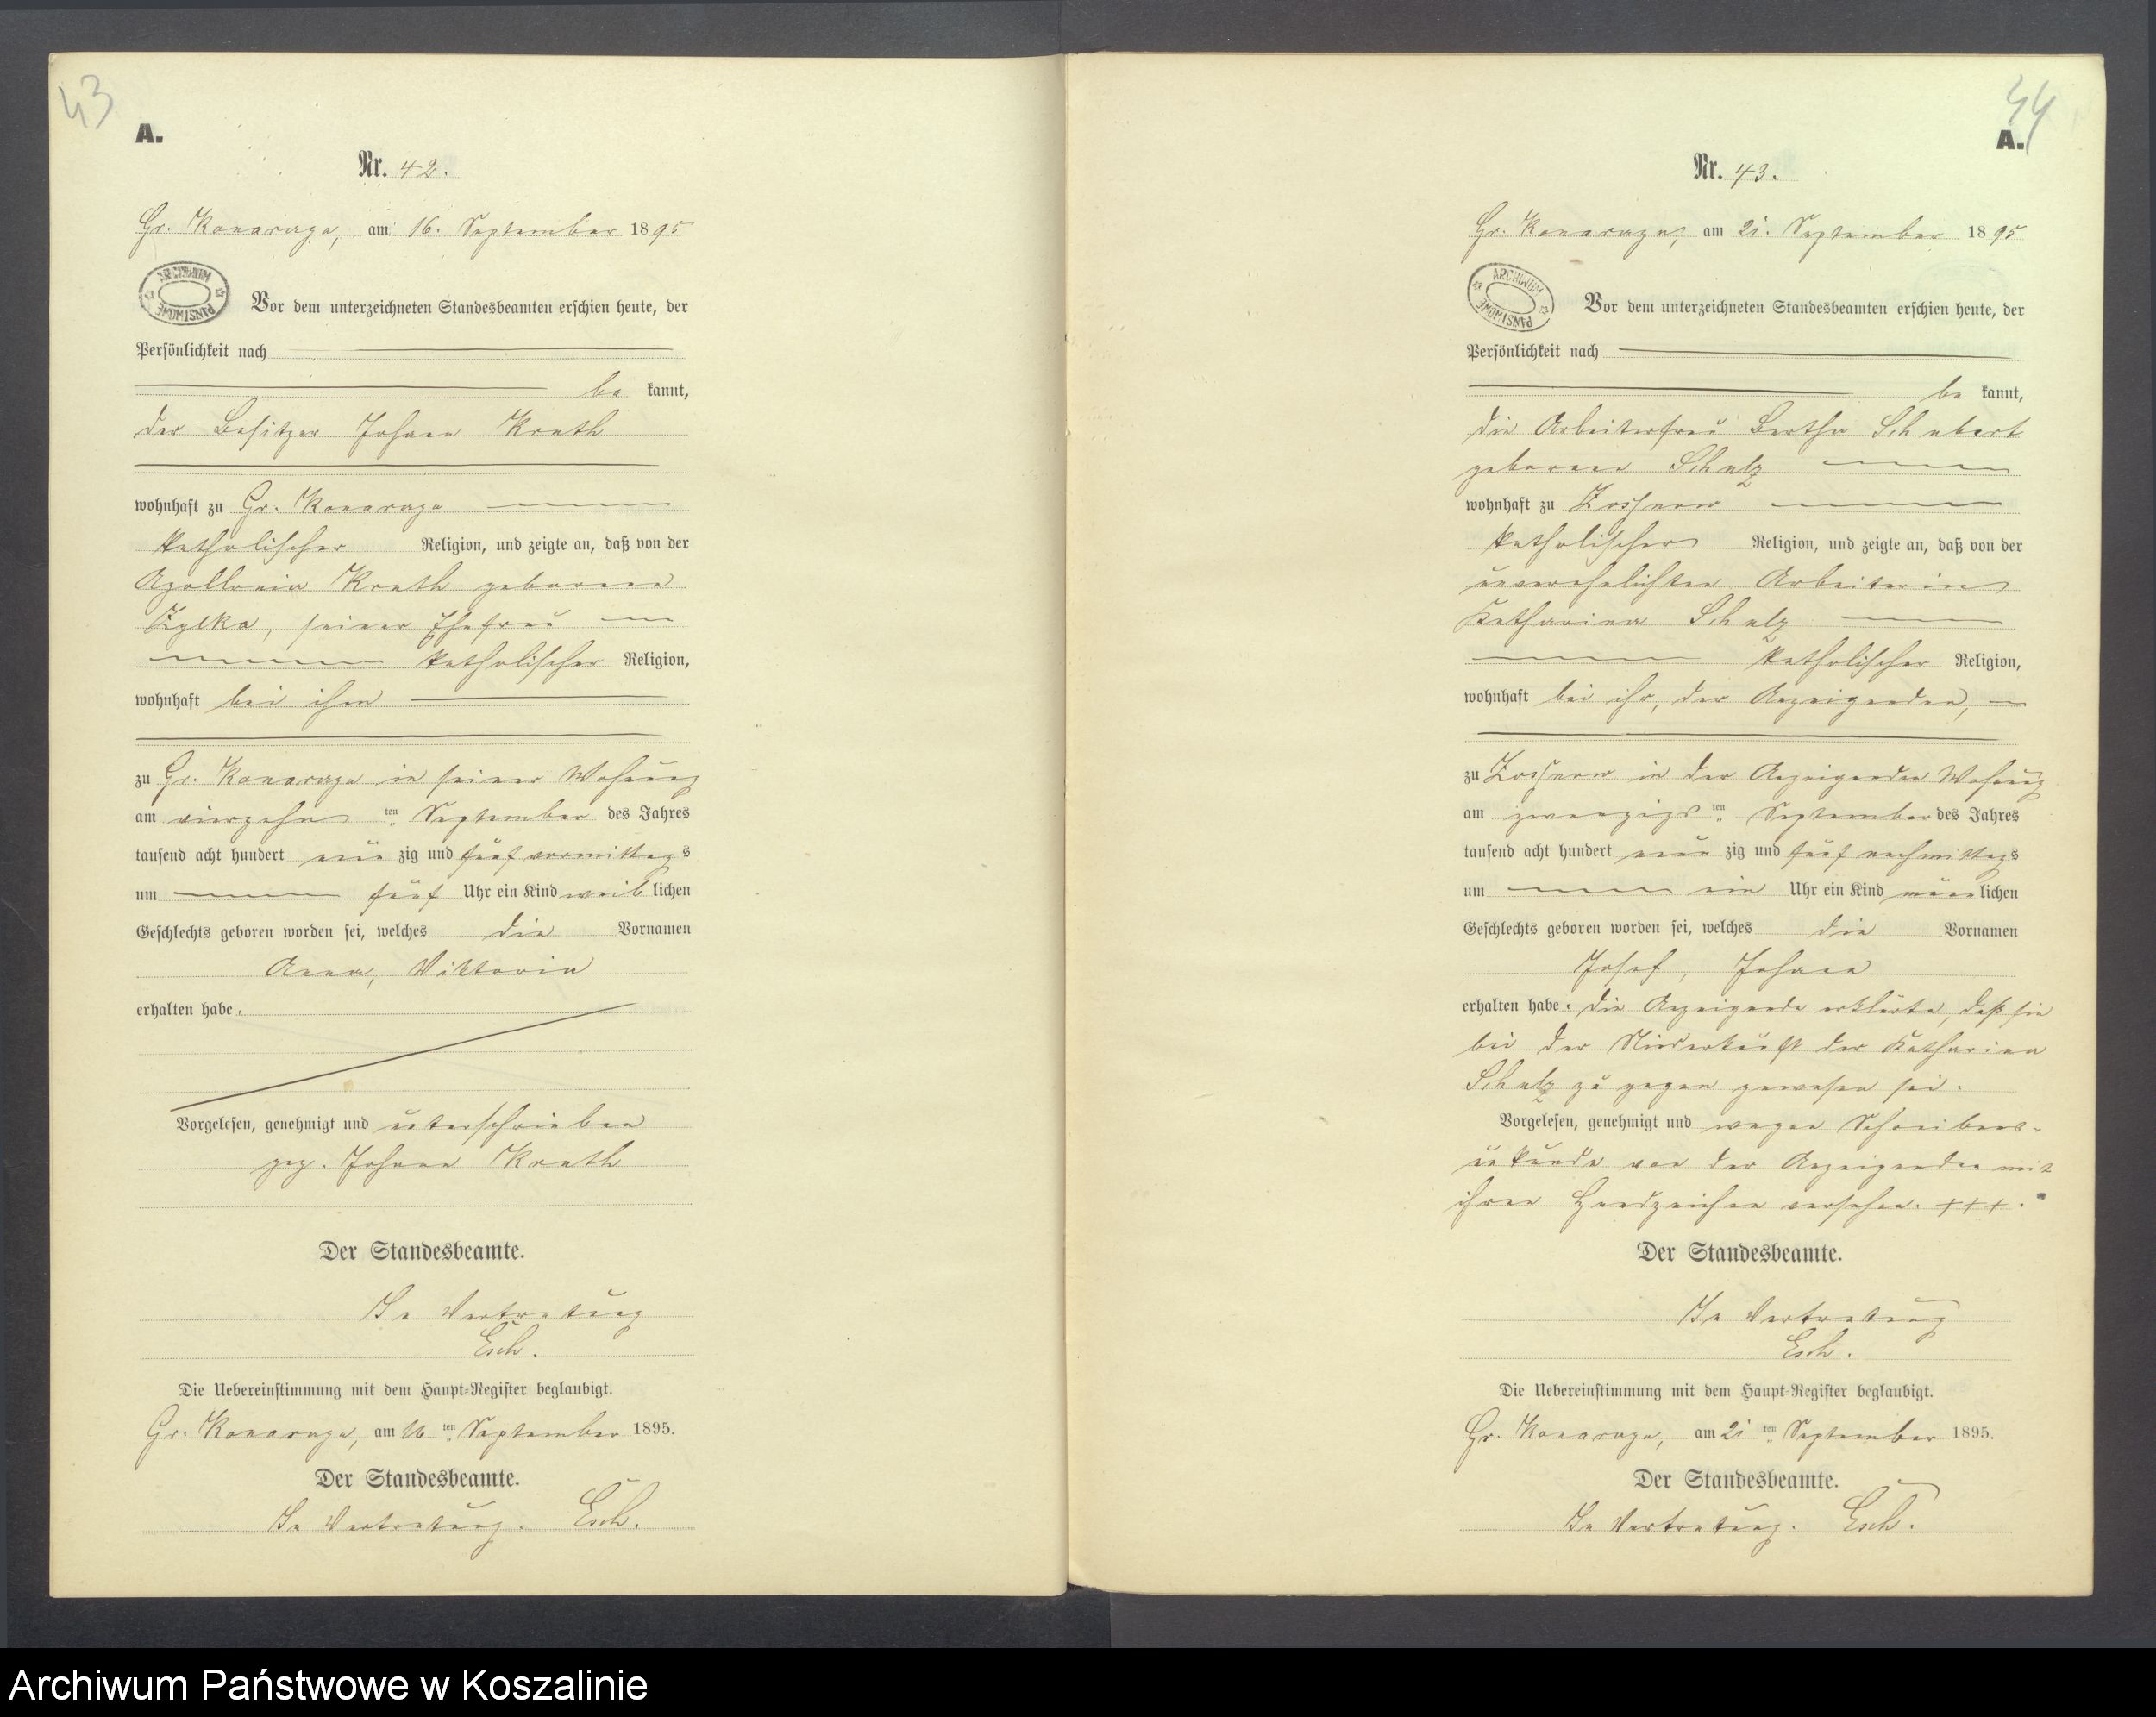 43
A.
Nr. 42.
Gr. Konarzyn, am 16. September 1895
ARCHIWUM PAŃSTWOWE
Vor dem unterzeichneten Standesbeamten erschien heute, der
Persönlichkeit nach
be kannt,
der Besitzer Johann
wohnhaft zu Gr. Konarzyn
katholischer Religion, und zeigte an, daß von der
Apollonia geborene
Zylka, seiner Ehefrau
katholischer Religion,
wohnhaft bei ihm
zu Gr. Konarzyn in seiner Wohnung
am vierzehn ten September des Jahres
tausend acht hundert neun zig und fünf vormittags
um fünf Uhr ein Kind weib lichen
Geschlechts geboren worden sei, welches die Vornamen
Anna, Viktoria
erhalten habe.
Vorgelesen, genehmigt und unterschrieben
gez. Johann
Der Standesbeamte.
In Vertretung
Esch.
Die Uebereinstimmung mit dem Haupt-Register beglaubigt.
Gr. Konarzyn, am 16 ten September 1895.
Der Standesbeamte.
In Vertretung. Esch.
44
A.
Nr. 43.
Gr. Konarzyn, am 21. September 1895
ARCHIWUM PAŃSTWOWE
Vor dem unterzeichneten Standesbeamten erschien heute, der
Persönlichkeit nach
be kannt,
die Arbeiterfrau Bertha Schubert
geborene Schulz
wohnhaft zu
katholischer Religion, und zeigte an, daß von der
unverehelichten Arbeiterin
Katharina Schulz
katholischer Religion,
wohnhaft bei ihr, der Anzeigenden,
zu in der Anzeigenden Wohnung
am zwanzigs ten September des Jahres
tausend acht hundert neun zig und fünf nachmittags
um ein Uhr ein Kind männ lichen
Geschlechts geboren worden sei, welches die Vornamen
Josef, Johann
erhalten habe. Die Anzeigende erklärte, daß sie
bei der Niederkunft der Katharina
Schulz zugegen gewesen sei.
Vorgelesen, genehmigt und wegen Schreibens-
unkunde von der Anzeigenden mit
ihren Handzeichen versehen. +++.
Der Standesbeamte.
In Vertretung
Esch.
Die Uebereinstimmung mit dem Haupt-Register beglaubigt.
Gr. Konarzyn, am 21 ten September 1895.
Der Standesbeamte.
In Vertretung. Esch.
Archiwum Państwowe w Koszalinie